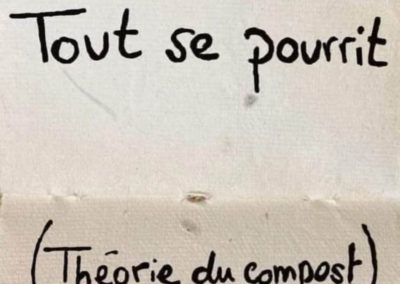 Tout se pourrit
(Théorie du compost)